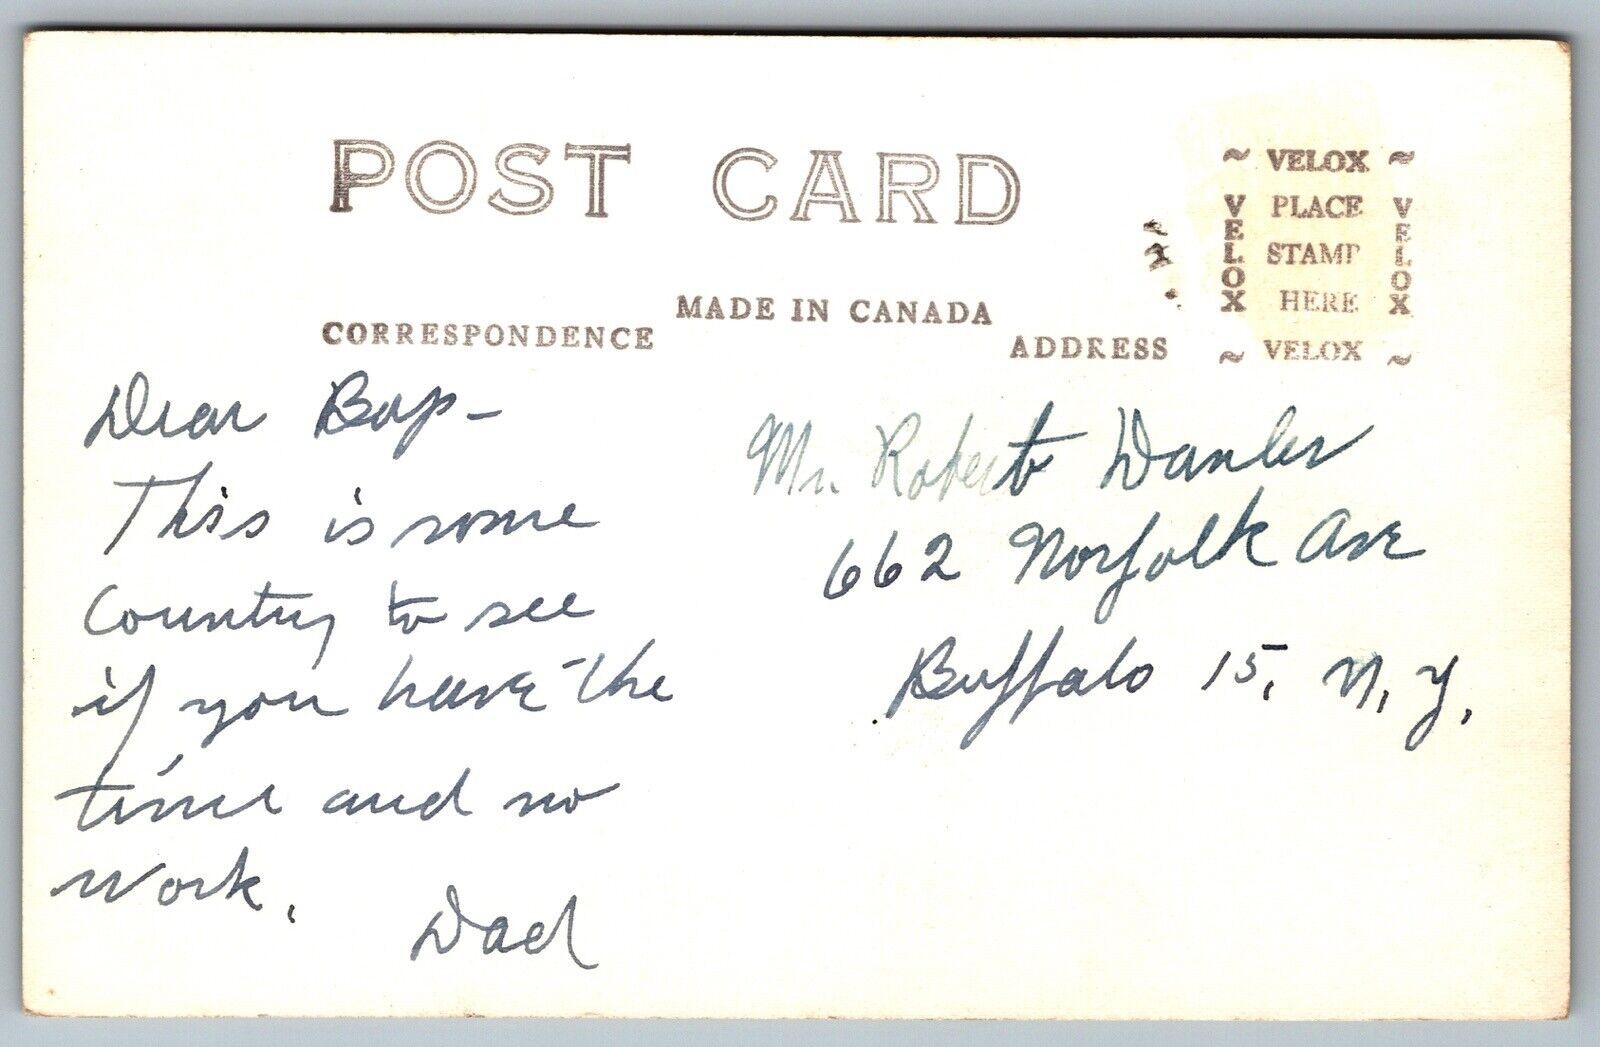 POST CARD
MADE IN CANADA
CORRESPONDENCE
ADDRESS
~ VELOX ~
VELOX
PLACE
STAMP
HERE
VELOX
~ VELOX ~
Dear Bop-
This is some
Country to see
if you have the
time and no
work.
Dad
Mr. Robert Danler
662 Norfolk Ave
Buffalo 15, N.Y.